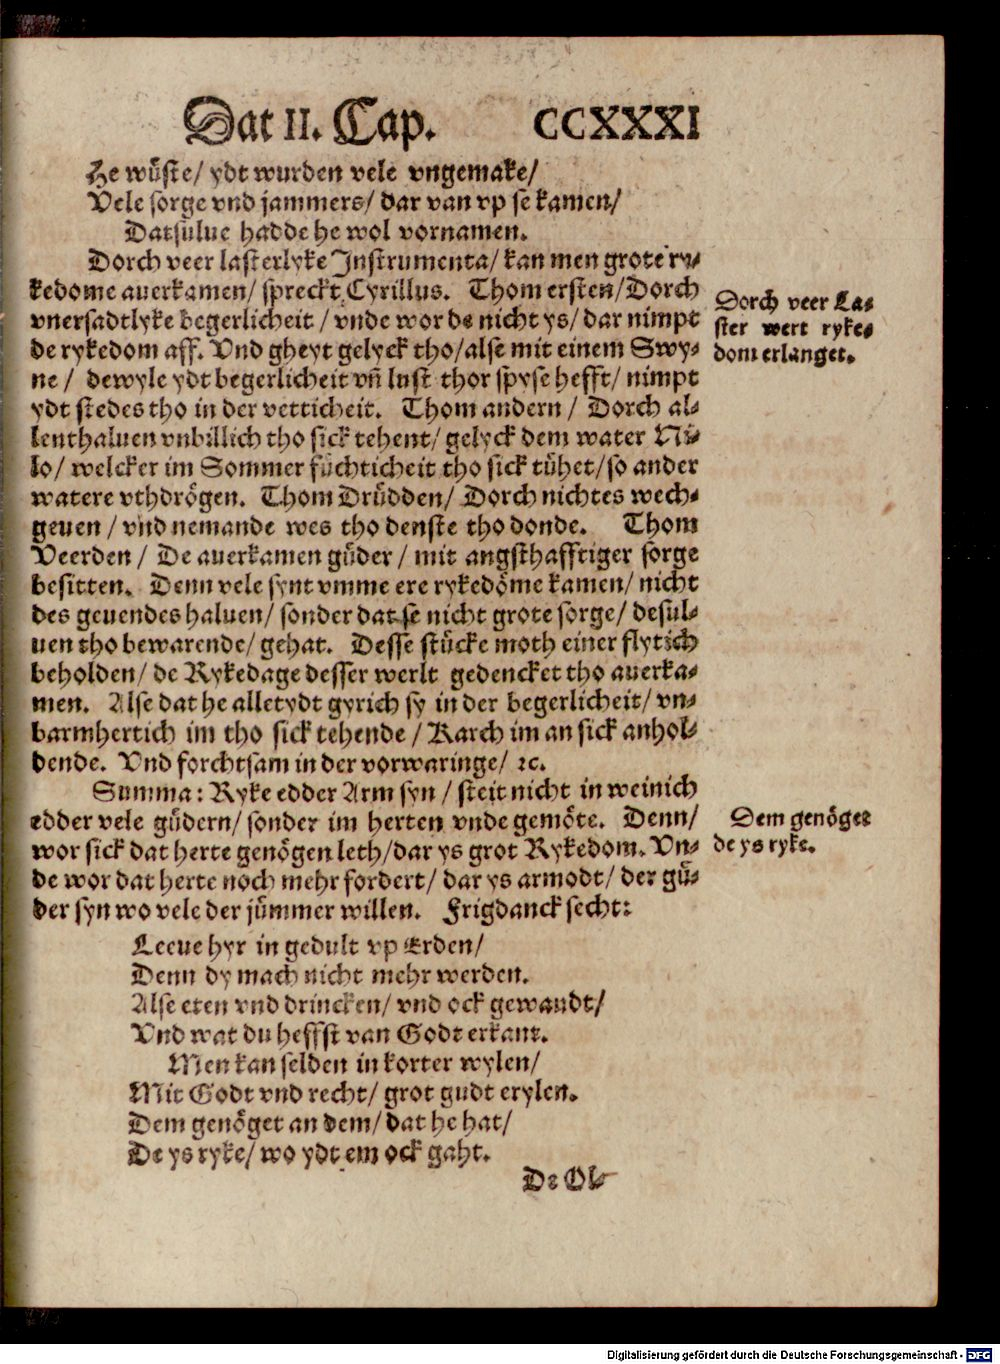 Dat II. Cap. CCXXXI
He wüste/ ydt wurden vele vngemake/
Vele sorge vnd jammers/ dar van vp se kamen/
Datsulue hadde he wol vornamen.
Dorch veer lasterlyke Instrumenta/ kan men grote ry-
kedome auerkamen/ spreckt Cyrillus. Thom ersten/ Dorch
vnersadtlyke begerlicheit / vnde wor de nicht ys/ dar nimpt
de rykedom aff. Vnd gheyt gelyck tho/ alse mit einem Swy-
ne / dewyle ydt begerlicheit vñ lust thor spyse hefft/ nimpt
ydt stedes tho in der vetticheit. Thom andern / Dorch al-
lenthaluen vnbillich tho sick tehent/ gelyck dem water Ni-
lo/ welcker im Sommer füchticheit tho sick tühet/ so ander
watere vthdrögen. Thom Drüdden/ Dorch nichtes wech-
geuen / vnd nemande wes tho denste tho donde. Thom
Veerden / De auerkamen güder / mit angsthafftiger sorge
besitten. Denn vele synt vmme ere rykedöme kamen/ nicht
des geuendes haluen/ sonder dat se nicht grote sorge/ desul-
uen tho bewarende/ gehat. Desse stücke moth einer flytich
beholden/ de Rykedage desser werlt gedencket tho auerka-
men. Alse dat he alletydt gyrich sy in der begerlicheit/ vn-
barmhertich im tho sick tehende / Karch im an sick anhol-
dende. Vnd forchtsam in der vorwaringe/ ꝛc.
Summa: Ryke edder Arm syn / steit nicht in weinich
edder vele güdern/ sonder im herten vnde gemöte. Denn/
wor sick dat herte genögen leth/ dar ys grot Rykedom. Vn-
de wor dat herte noch mehr fordert/ dar ys armodt/ der gü-
der syn wo vele der jümmer willen. Frigdanck secht:
Leeue hyr in gedult vp Erden/
Denn dy mach nicht mehr werden.
Alse eten vnd drincken/ vnd ock gewandt/
Vnd wat du heffst van Godt erkant.
Men kan selden in korter wylen/
Mit Godt vnd recht/ grot gudt erylen.
Dem genöget an dem/ dat he hat/
De ys ryke/ wo ydt em ock gaht.
De Ol-
Dorch veer La-
ster wert ryke-
dom erlanget.
Dem genöget
de ys ryke.
Digitalisierung gefördert durch die Deutsche Forschungsgemeinschaft - DFG